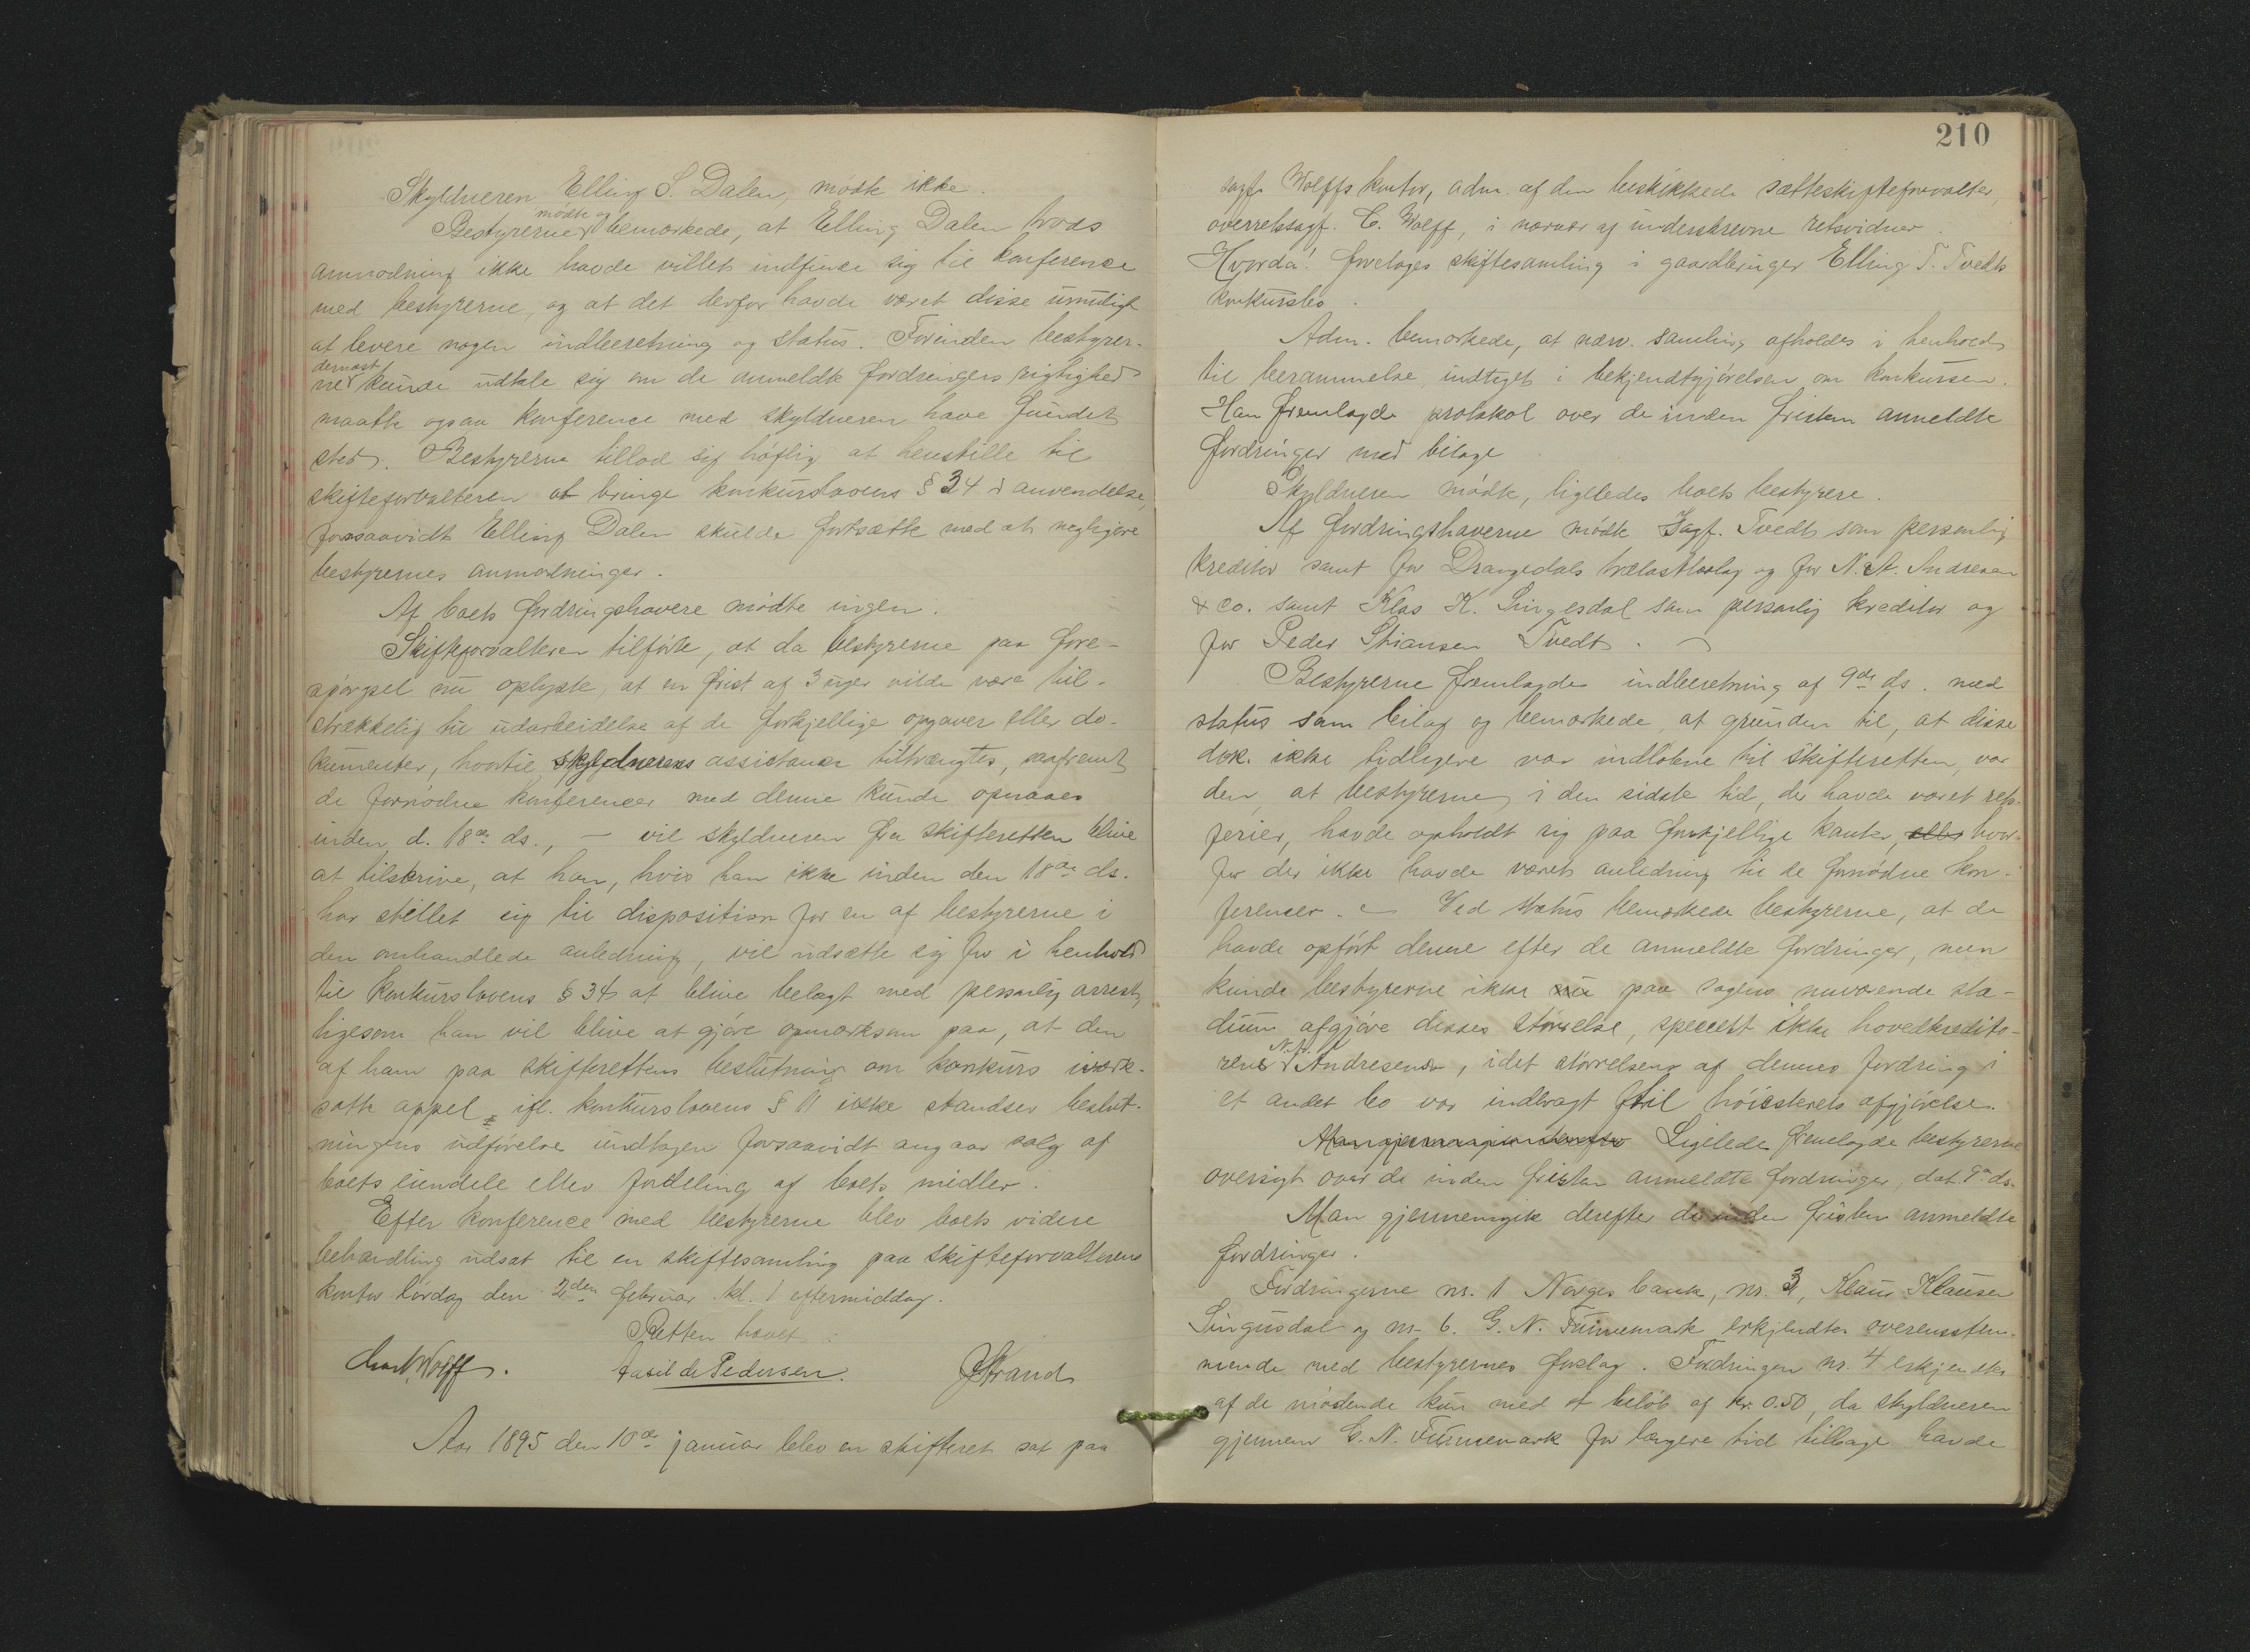 Skyldneren Elling S. Dalen, mødte ikke.
Bestyrerne mødte og bemærkede, at Elling Dalen trods
anmodning ikke havde villet indfinde sig til konference
med bestyrerne, og at det derfor havde været disse umuligt
at levere nogen indberetning og status. Forinden bestyrer-
ne dernæst kunde udtale sig om de anmeldte fordringers rigtighed
maatte ogsaa konference med skyldneren have fundet
sted. Bestyrerne tillod sig høflig at henstille til
skifteforvalteren at bringe konkurslovens § 34 i anvendelse,
forsaavidt Elling Dalen skulde fortsætte med at negligere
bestyrernes anmodninger.
Af boets fordringshavere mødte ingen.
Skifteforvalteren tilførte, at da bestyrerne paa fore-
spørgsel nu oplyste, at en frist af 3 uger vilde være til-
strækkelig til udarbeidelse af de forskjellige opgaver eller do-
kumenter, hvortil skyldnerens assistance tiltrængtes, saafremt
de fornødne konferencer med denne kunde opnaaes
inden d. 18de ds., – vil skyldneren fra skifteretten blive
at tilskrive, at han, hvis han ikke inden den 18de ds.
har stillet sig til disposition for en af bestyrerne i
den omhandlede anledning, vil udsætte sig for i henhold
til konkurslovens § 34 at blive belagt med personlig arrest,
ligesom han vil blive at gjøre opmærksom paa, at den
af ham paa skifterettens beslutning om konkurs iværk-
satte appel ifl. konkurslovens § 11 ikke standser beslut-
ningens udførelse undtagen forsaavidt angaar salg af
boets eiendele eller fordeling af boets midler.
Efter konference med bestyrerne blev boets videre
behandling udsat til en skiftesamling paa skifteforvalterens
kontor lørdag den 2den februar kl. 1 eftermiddag.
Retten hævet:
Carl Wolff. Pedersen. JStrand
Aar 1895 den 10de januar blev en skifteret sat paa
210
sagf. Wolffs kontor, adm. af den beskikkede sætteskifteforvalter,
overretssagf. C. Wolff, i nærvær af underskrevne retsvidner.
Hvorda! foretages skiftesamling i gaardbruger Elling T. Tvedts
konkursbo.
Adm. bemærkede, at nærv. samling afholdes i henhold
til berammelse indtaget i bekjendtgjørelsen om konkursen.
Han fremlagde protokol over de inden fristen anmeldte
fordringer med bilage
Skyldneren mødte, ligeledes boets bestyrere.
Af fordringshaverne mødte Sagf. Tvedt som personlig
kreditor samt for Drangedals trælastlag og for N. A. Andresen
& Co. samt Klas K. Singusdal som personlig kreditor og
for Peder Stiansen Tvedt.
Bestyrerne fremlagde indberetning af 9de ds. med
status som bilag og bemærkede, at grunden til, at disse
dok. ikke tidligere var indløbne til skifteretten, var
den, at bestyrerne, i den sidste tid, der havde været rets-
ferier, havde opholdt sig paa forskjellige kanter, eller hvor-
for der ikke havde været anledning til de fornødne kon-
ferencer. – Ved status bemærkede bestyrerne, at de
havde opført denne efter de anmeldte fordringer, men
kunde bestyrerne ikke nu paa sagens nuværende sta-
dium afgjøre disses størrelse, specielt ikke hovedkredito-
rens N. A. Andresens, idet størrelsen af dennes fordring i
et andet bo var indbragt til høiesterets afgjørelse.
Ligeledes fremlagde bestyrerne
oversigt over de inden fristen anmeldte fordringer, dat. 9de ds.
Man gjennemgik derefter de inden fristen anmeldte
fordringer.
Fordringerne nr. 1 Norges bank, nr. 3, Klaus Klausen
Singusdal og nr. 6. G. N. Funnemark erkjendtes overensstem-
mende med bestyrernes forslag. Fordringen nr. 4 erkjendtes
af de mødende kun med et beløb af kr. 0.50, da skyldneren
gjennem G. N. Funnemark for længere tid tilbage havde